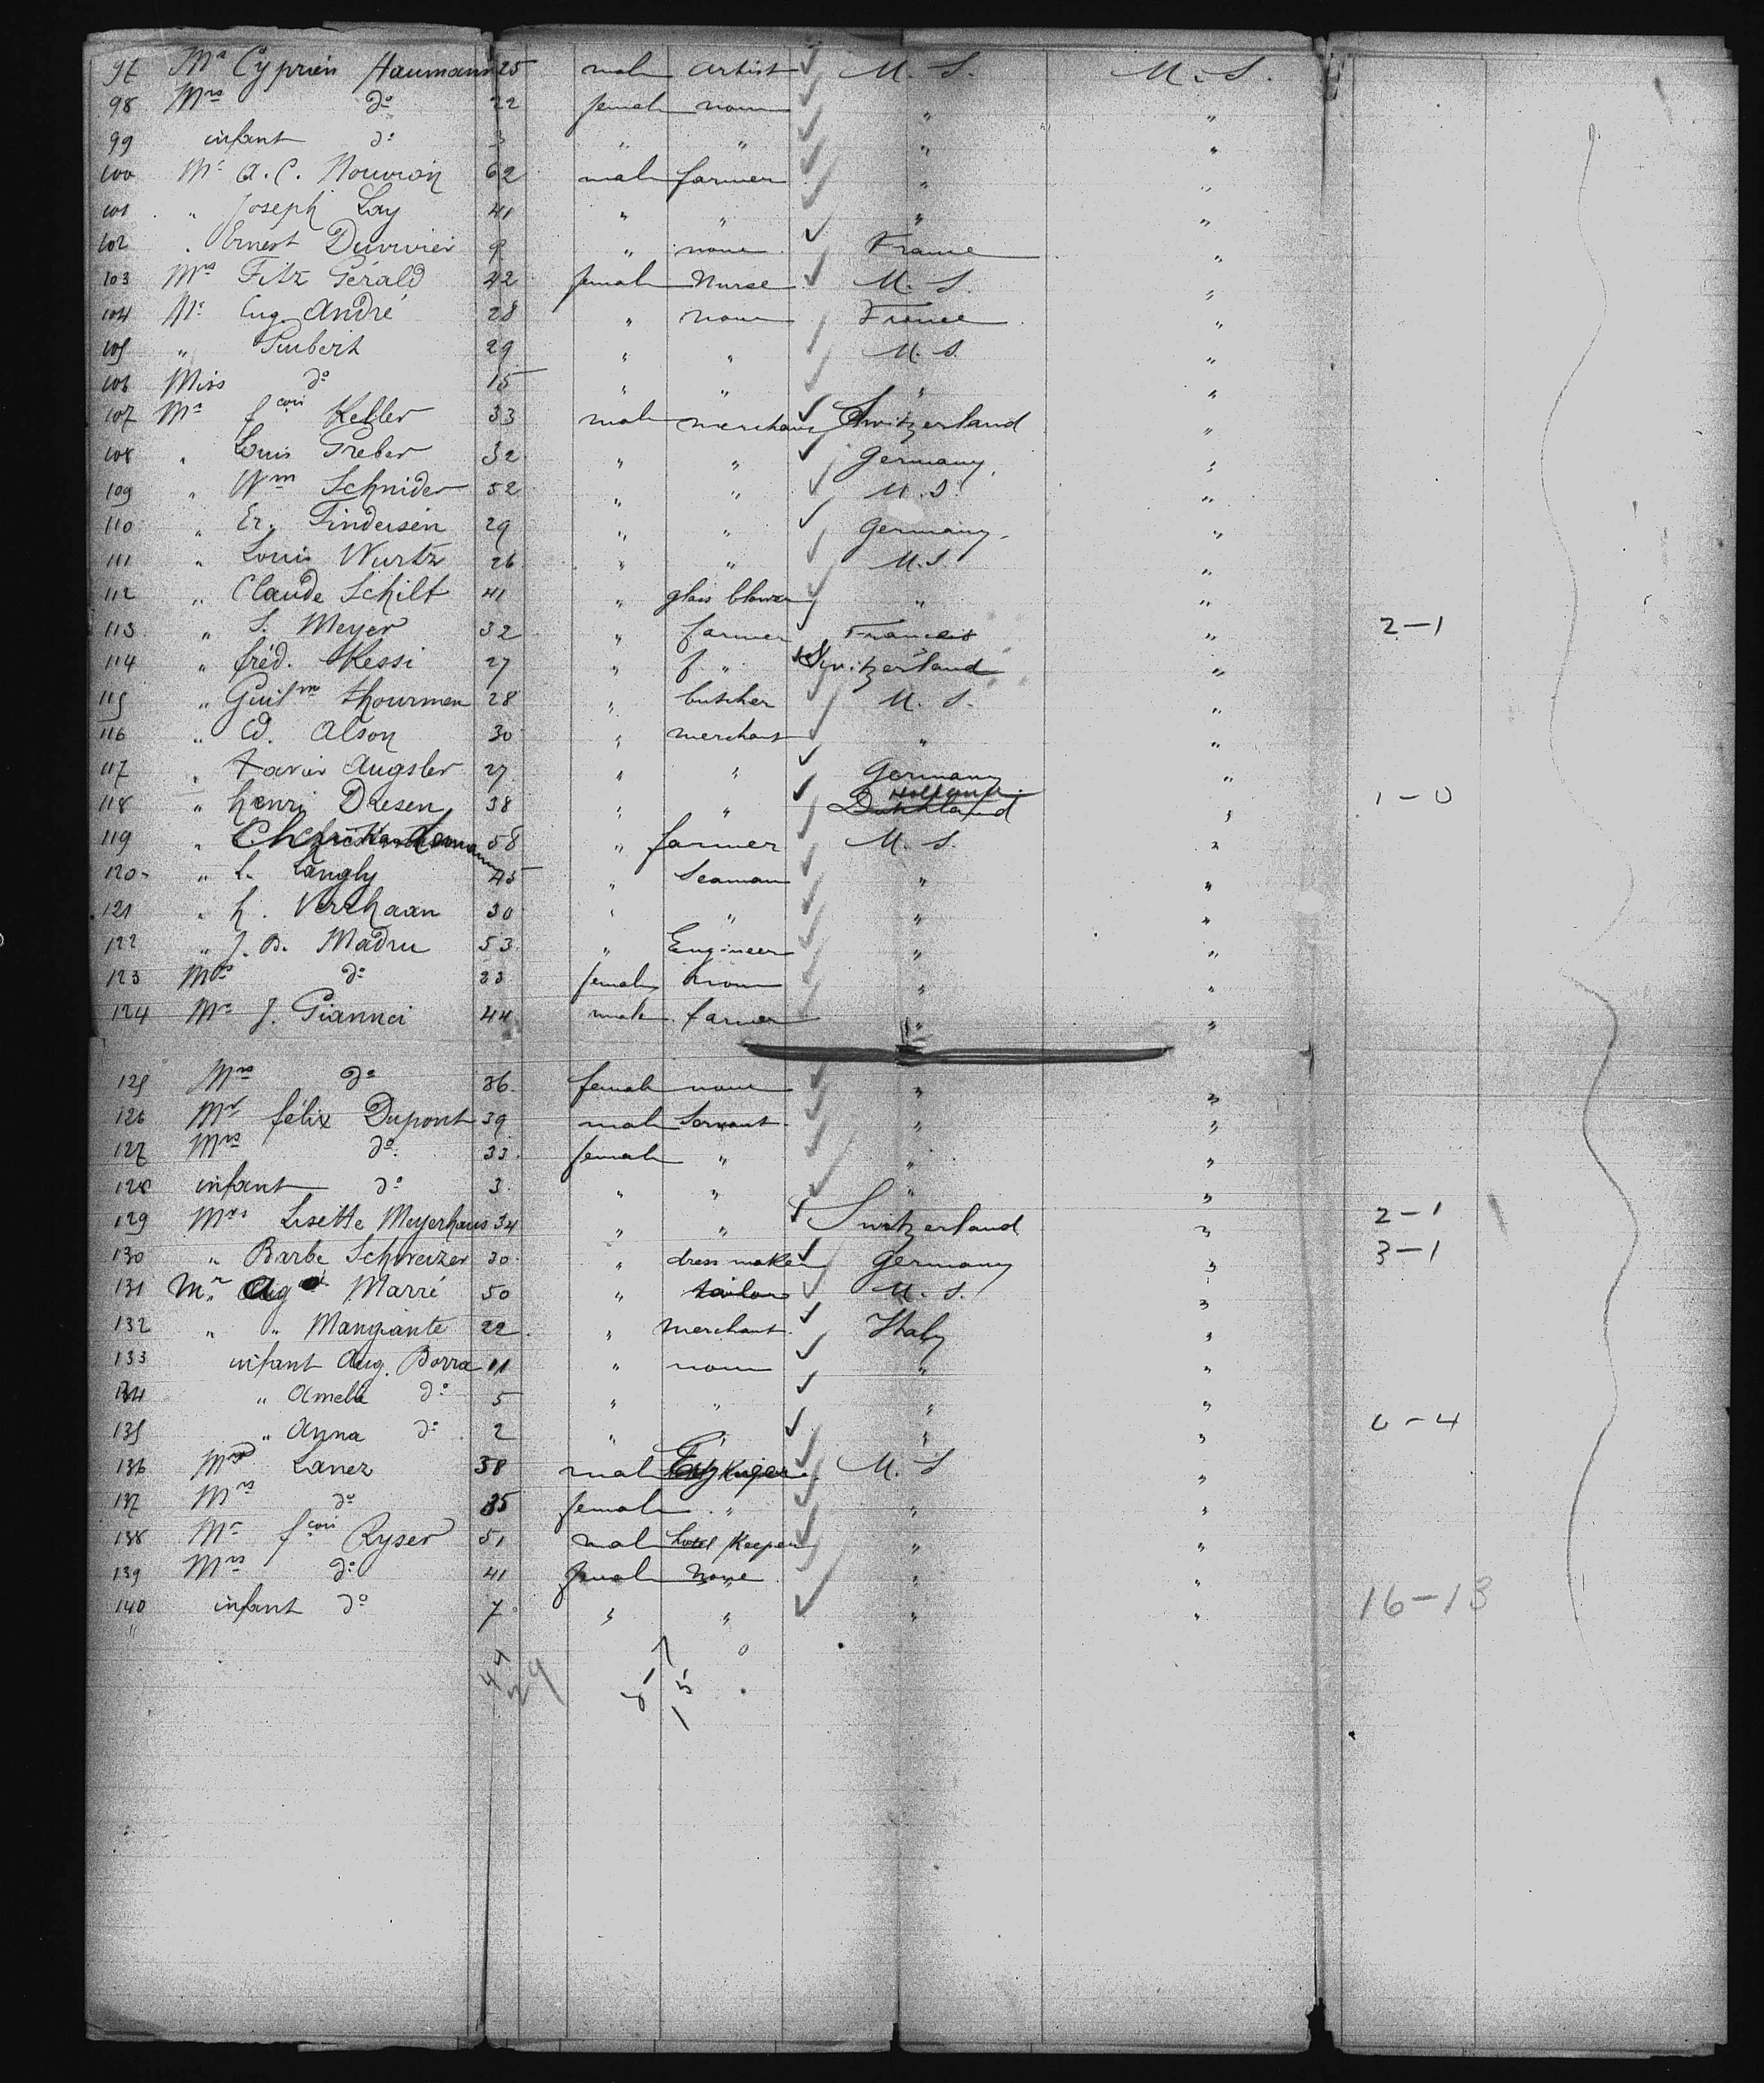 97 Mr Cyprien Haumann 25 male artist U. S. U. S.
98 Mrs do 22 female none " "
99 infant do 3 " " " "
100 Mr A. C. Nouvion 62 male farmer " "
101 " Joseph Lay 41 " " " "
102 " Ernest Duvivier 9 " none France "
103 Mrs Fitz Gérald 42 female Nurse U. S. "
104 Mr Eug. André 28 " none France "
105 " Guibert 29 " " U. S. "
106 Miss do 15 " " " "
107 Mr fcois Keller 33 male merchant Switzerland "
108 " Louis Greber 32 " " Germany "
109 " Wm Schnider 52 " " U. S. "
110 " Er. Findersen 29 " " Germany "
111 " Louis Wurtz 26 " " U. S. "
112 " Claude Schilt 41 " glass blower " "
113 " S. Meyer 32 " farmer " 2-1
114 " fréd. Kessi 27 " f. " Switzerland "
115 " Guilm thourmen 28 " butcher U. S. "
116 " Ed. Alson 30 " merchant " "
117 " Xavier Augsler 27 " " Germany "
118 " henri Dresen 38 " " Holland " 1-0
119 " 58 " farmer U. S. "
120 " L. Langly 45 " Seaman " "
121 " h. Verhaan 30 " " " "
122 " J. B. Madru 53 " Engineer " "
123 Mrs do 23 female none " "
124 Mr J. Giannei 44 male farmer " "
125 Mrs do 36 female none " "
126 Mr félix Dupont 39 male Servant " "
127 Mrs do 33 female " " "
128 infant do 3 " " " "
129 Mrs Lisette Meyerhaus 34 " " Switzerland " 2-1
130 " Barbe Schweizer 30 " dress maker Germany " 3-1
131 Mr Marré 50 " tailor U. S. "
132 " " Mangiante 22 " merchant Italy "
133 infant Aug. Borra 11 " none " "
134 " Amelia do 5 " " " "
135 " Anna do 2 " " " " 6-4
136 Lanez 38 male U. S "
137 Mrs do 35 female " " "
138 Mr fcois Ryser 51 male hotel Keeper " "
139 Mrs do 41 female None " "
140 infant do 7 " " " " 16-13
44
29